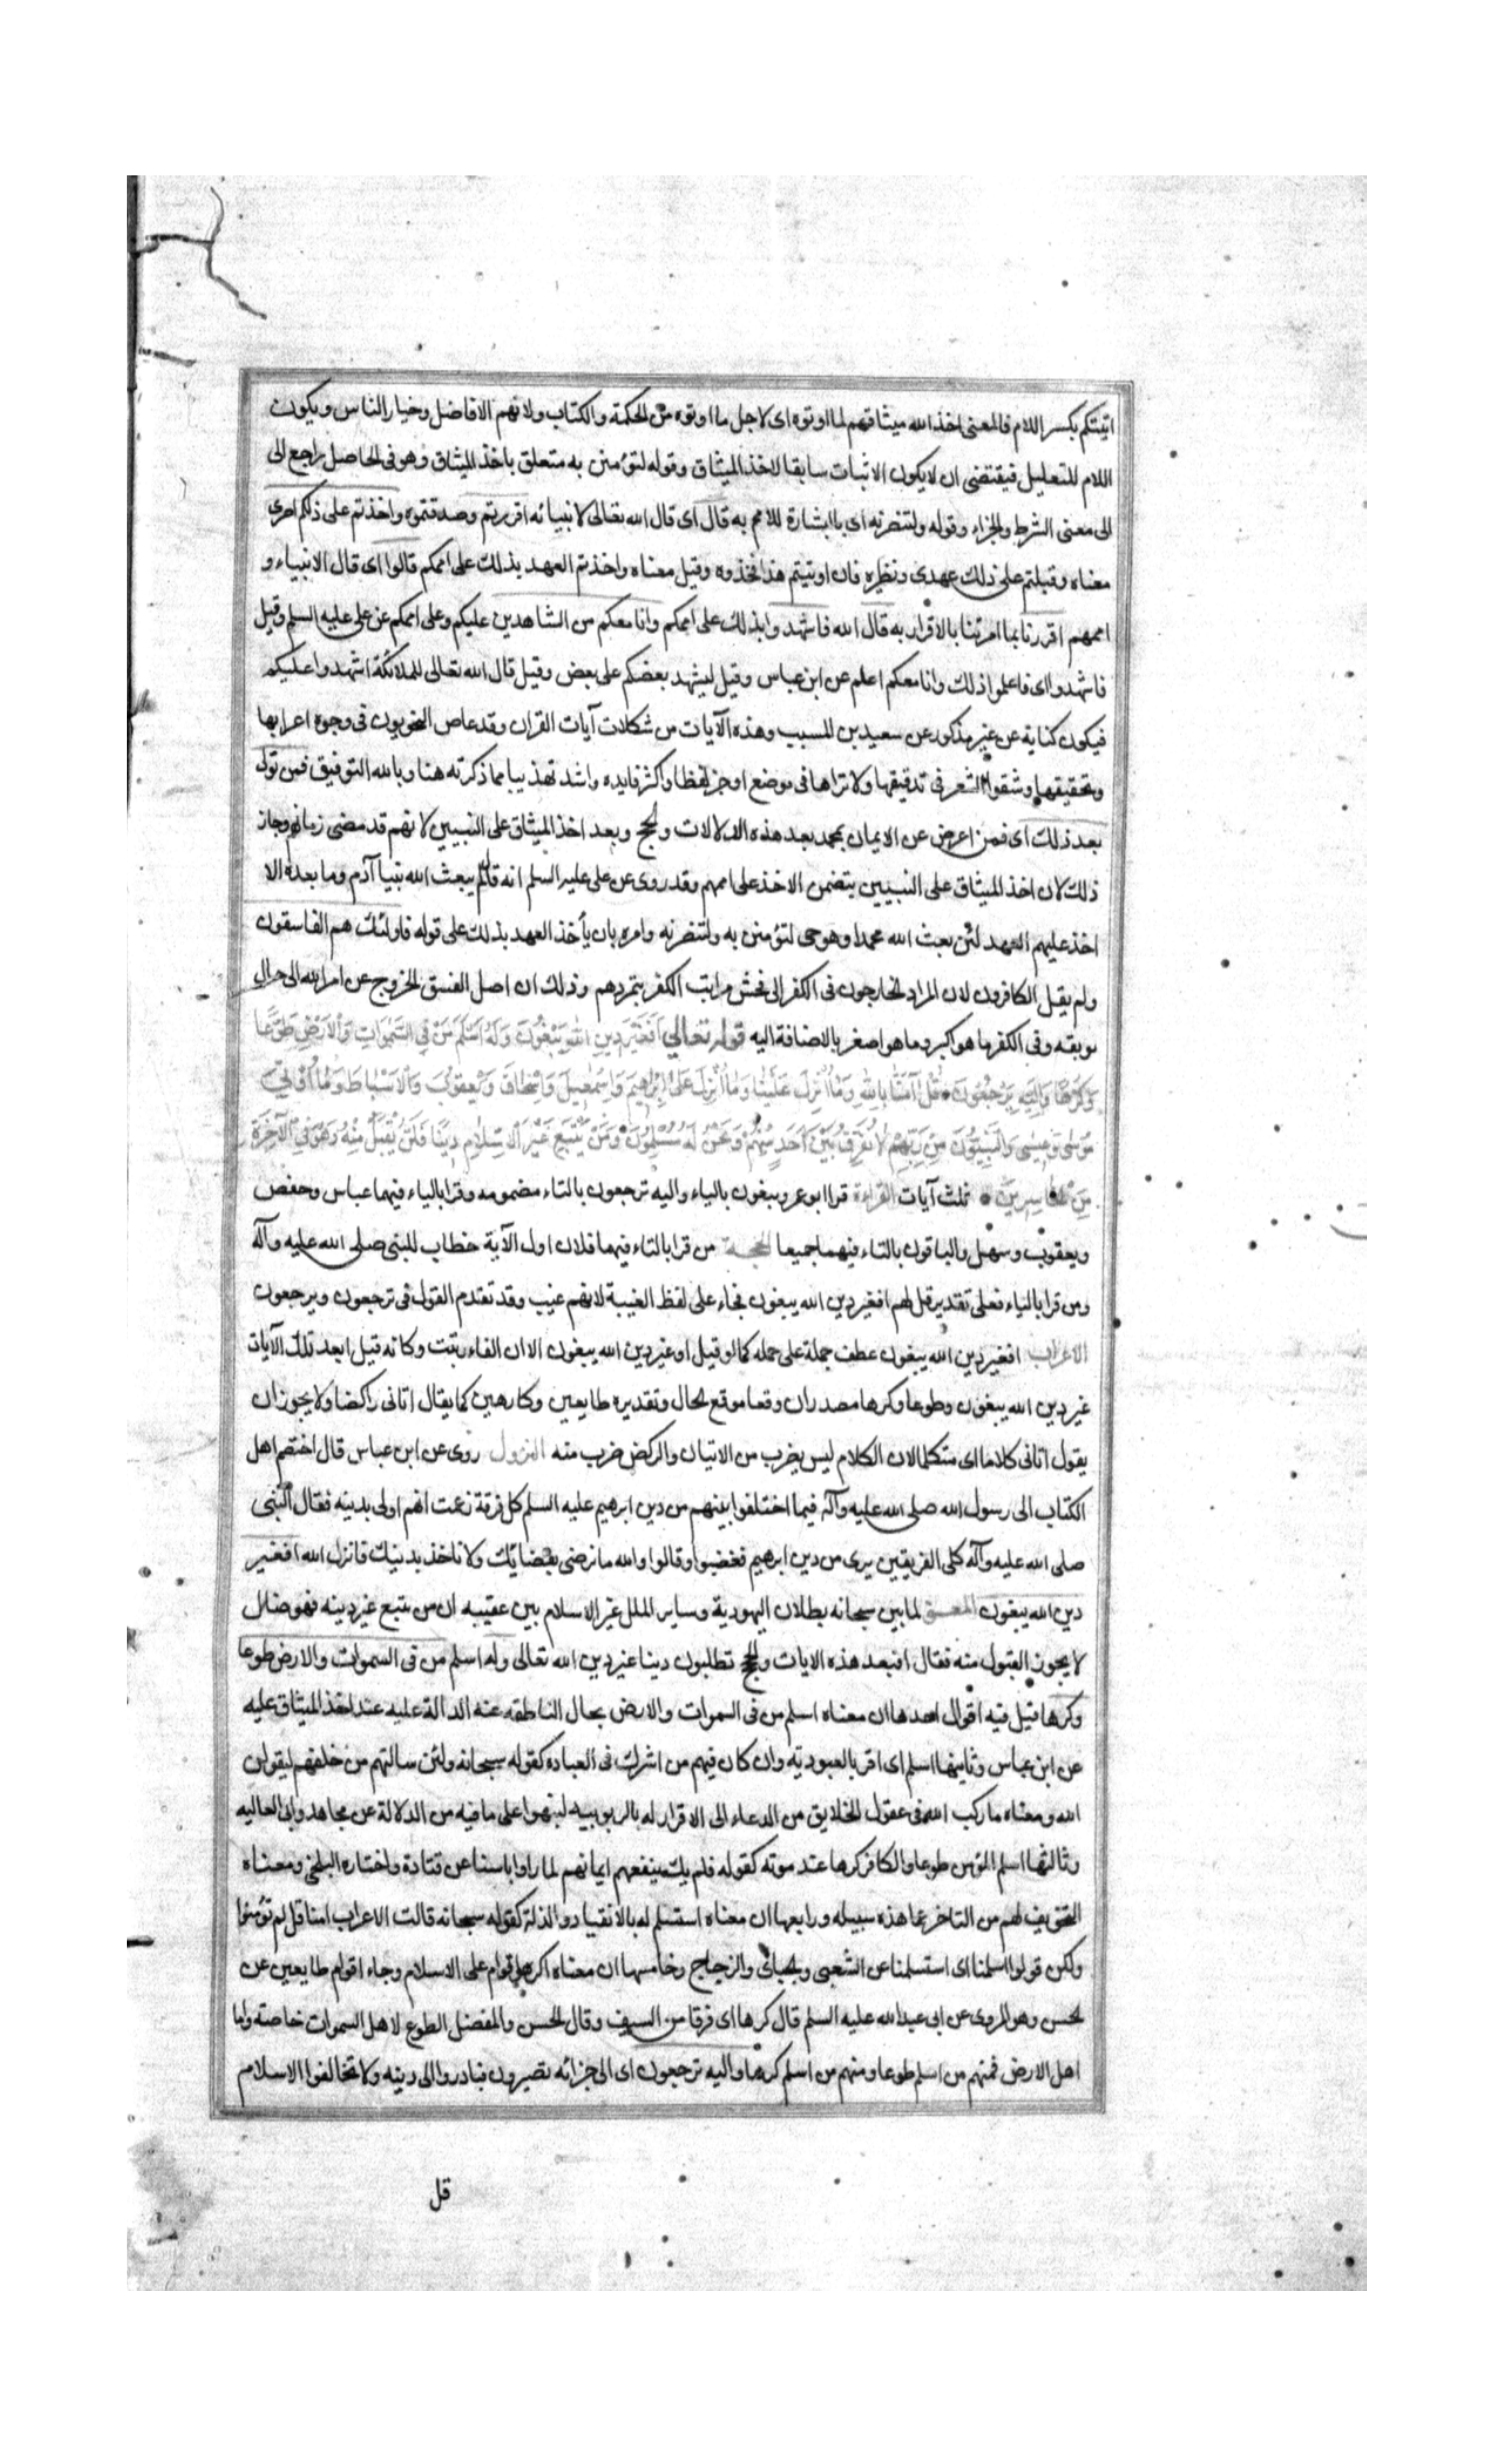 اتيتكم بكسر اللام فالمعنى اخذ الله ميثاقهم لما اوتوه اى لاجل ما اوتوه من الحكمة والكتاب ولانهم الافاضل وخيار الناس ويكون
اللام للتعليل فيقتضى ان لا يكون الاثبات سابقا لاخذ الميثاق وقوله لتؤمنن به متعلق باخذ الميثاق وهو فى الحاصل راجع الى
الى معنى الشرط والجزاء وقوله ولتنصرنه اى بالبشارة للامم به قال اى قال الله تعالى لانبيائه اقررتم وصدقتموه واخذتم على ذلكم اصرى
معناه وقبلتم على ذلك عهدى ونظيره فان اوتيتم هذا فخذوه وقيل معناه واخذتم العهد بذلك على اممكم قالوا اى قال الانبياء و
اممهم اقررنا بما امرتنا بالاقرار به قال الله فاشهدوا بذلك على اممكم وانا معكم من الشاهدين عليكم وعلى اممكم عن على عليه السلم وقيل
فاشهدوا اى فاعلموا ذلك وانا معكم اعلم عن ابن عباس وقيل ليشهد بعضكم على بعض وقيل قال الله تعالى للملائكة اشهدوا عليكم
فيكون كناية عن غير مذكور عن سعيد بن المسيب وهذه الآيات من مشكلات آيات القران وقد غاص النحويون فى وجوه اعرابها
وتحقيقها وشقوا الشعر فى تدقيقها ولا تراها فى موضع اوجز لفظا واكثر فايده واشد تهذيبا مما ذكرته هنا وبالله التوفيق فمن تولى
بعد ذلك اى فمن اعرض عن الايمان بمحمد بعد هذه الدلالات والحجج وبعد اخذ الميثاق على النبيين لانهم قد مضى زمانهم وجاز
ذلك لان اخذ الميثاق على النبيين يتضمن الاخذ على اممهم وقد روى عن على عليه السلم انه قال لم يبعث الله نبيا آدم وما بعده الا
اخذ عليهم العهد لئن بعث الله محمدا وهو حى لتؤمنن به ولتنصرنه وامره بان يأخذ العهد بذلك على قوله فاولئك هم الفاسقون
ولم يقل الكافرون لان المراد الخارجون فى الكفر الى فحش مراتب الكفر بتمردهم وذلك ان اصل الفسق الخروج عن امر الله الى حال
توبقه وفى الكفر ما هو اكبر وما هو اصغر بالاضافة اليه قوله تعالى أَفَغَيْرَ دِينِ اللهِ يَبْغُونَ وَلَهُ أَسْلَمَ مَنْ فِي السَّمٰوَاتِ وَالْأَرْضِ طَوْعًا
وَكَرْهًا وَإِلَيْهِ يُرْجَعُونَ قُلْ آمَنَّا بِاللهِ وَمَا أُنْزِلَ عَلَيْنَا وَمَا أُنْزِلَ عَلَى إِبْرٰهِيمَ وَإِسْمٰعِيلَ وَإِسْحٰاقَ وَيَعْقُوبَ وَالْأَسْبَاطِ وَمَا أُوتِيَ
مُوسَى وَعِيسَى وَالنَّبِيُّونَ مِنْ رَبِّهِمْ لَا نُفَرِّقُ بَيْنَ أَحَدٍ مِنْهُمْ وَنَحْنُ لَهُ مُسْلِمُونَ وَمَنْ يَبْتَغِ غَيْرَ الْإِسْلَامِ دِينًا فَلَنْ يُقْبَلَ مِنْهُ وَهُوَ فِي الْآخِرَةِ
مِنَ الْخَاسِرِينَ ثلث آيات القراءة قرا ابو عمرو يبغون بالياء واليه ترجعون بالتاء مضمومه وقرا بالياء فيهما عباس وحفص
ويعقوب وسهل والباقون بالتاء فيهما جميعا الحجة من قرا بالتاء فيهما فلان اول الآية خطاب للنبى صلى الله عليه وآله
ومن قرا بالياء فعلى تقدير قل لهم افغير دين الله يبغون فجاء على لفظ الغيبة لانهم غيب وقد تقدم القول فى ترجعون ويرجعون
الاعراب افغير دين الله يبغون عطف جملة على جمله كما لو قيل او غير دين الله يبغون الا ان الفاء رتبت وكانه قيل ابعد تلك الآيات
غير دين الله يبغون وطوعا وكرها مصدران وقعا موقع الحال وتقديره طايعين وكارهين كما يقال اتانى راكضا ولا يجوز ان
يقول اتانى كلاما اى متكلما لان الكلام ليس بضرب من الاتيان والركض ضرب منه النزول روى عن ابن عباس قال اختصم اهل
الكتاب الى رسول الله صلى الله عليه وآله فيما اختلفوا بينهم من دين ابرهيم عليه السلم كل فرقة زعمت انهم اولى بدينه فقال النبى
صلى الله عليه وآله كلى الفريقين برى من دين ابرهيم فغضبوا وقالوا والله ما نرضى بقضائك ولا ناخذ بدينك فانزل الله افغير
دين الله يبغون المعنى لما بين سبحانه بطلان اليهودية وساير الملل غير الاسلام بين عقيبه ان من يتبع غير دينه فهو ضال
لا يجوز القبول منه فقال افبعد هذه الايات والحجج تطلبون دينا غير دين الله تعالى وله اسلم من فى السموات والارض طوعا
وكرها قيل فيه اقوال احدها ان معناه اسلم من فى السموات والارض بحال الناطقه عنه الدالة عليه عند اخذ الميثاق عليه
عن ابن عباس وثانيها اسلم اى اقر بالعبودية وان كان فيهم من اشرك فى العباده كقوله سبحانه ولئن سالتهم من خلقهم ليقولن
الله ومعناه ما ركب الله فى عقول الخلايق من الدعاء الى الاقرار له بالربوبيه لينبهوا على ما فيه من الدلالة عن مجاهد وابى العاليه
وثالثها اسلم المؤمن طوعا والكافر كرها عند موته كقوله فلم يك ينفعهم ايمانهم لما راوا باسنا عن قتادة واختاره البلخى ومعناه
التخويف لهم من التاخر عما هذه سبيله ورابعها ان معناه استسلم له بالانقياد والذلة كقوله سبحانه قالت الاعراب امنا قل لم تؤمنوا
ولكن قولوا اسلمنا اى استسلمنا عن الشعبى والجبائى والزجاج وخامسها ان معناه اكره اقوام على الاسلام وجاء اقوام طايعين عن
الحسن وهو المروى عن ابى عبد الله عليه السلم قال كرها اى فرقا من السيف وقال الحسن والمفضل الطوع لاهل السموات خاصة واما
اهل الارض فمنهم من اسلم طوعا ومنهم من اسلم كرها واليه ترجعون اى الى جزائه تصيرون فبادروا الى دينه ولا تخالفوا الاسلام
قل